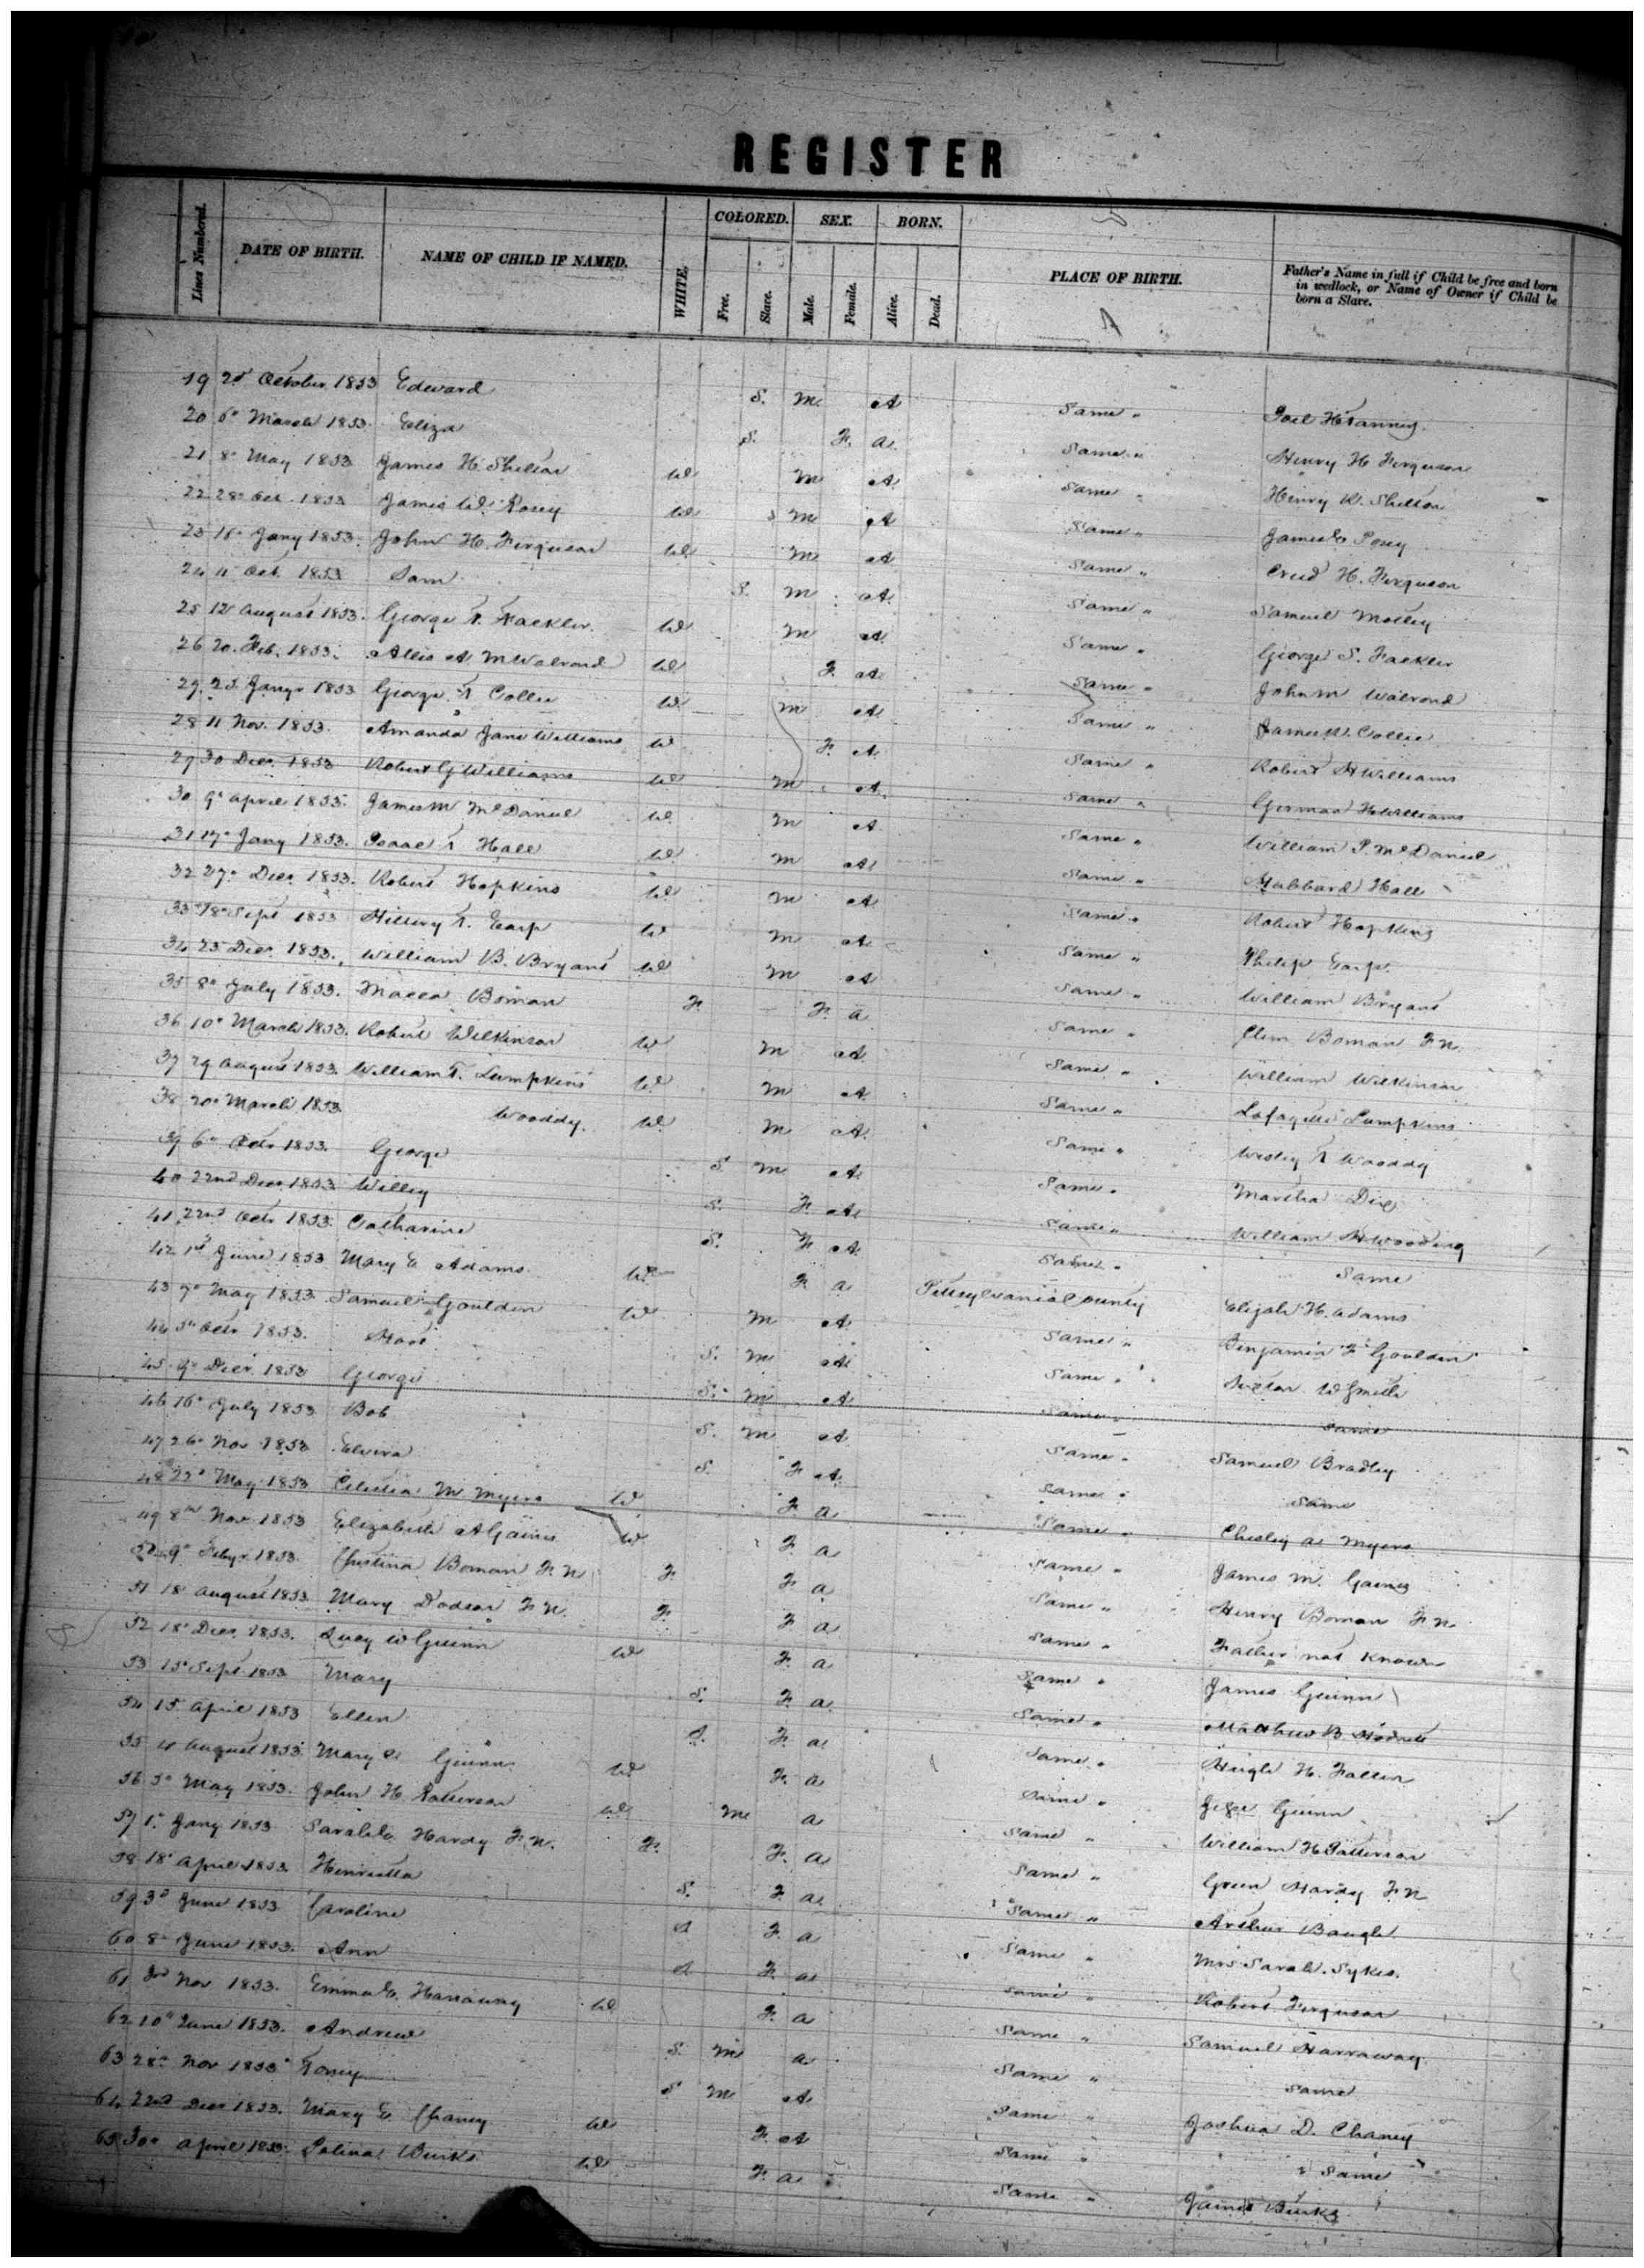 REGISTER
Lines Numbered. DATE OF BIRTH. NAME OF CHILD IF NAMED. WHITE. COLORED. Free. Slave. SEX. Male. Female. BORN. Alive. Dead. PLACE OF BIRTH. Father's Name in full if Child be free and born in wedlock, or Name of Owner if Child be born a Slave.
19 October 1853 Edward S. M A Same "
20 6" March 1853 Eliza S. F. a. Same " Henry H Ferguson
21 8" May 1853 James H. Shelton W M A Same " Henry W. Shelton
22 28" Oct 1853 James W. Posey W M A Same " James Posey
23 16" Jany 1853. John H. Ferguson W M A Same " H. Ferguson
24 Oct. 1853 Sam S. M A. Same " Samuel Motley
25 12" August 1853. George T. Fackler. W M A Same " George S. Fackler
26 20. Feb. 1853. A M Walrond W F. A Same " John M Walrond
27. 25. Jany 1853 George T Collie W. M A. Same " James Collie
28 11 Nov. 1853. Amanda Jane Williams W F. A. Same " Robert H Williams
29 30 Decr. 1853 Robert G Williams W M A. Same " German Williams
30 9" April 1853. James M McDaniel W. M A Same " William P. McDaniel
31 17" Jany 1853. Isaac T Hall W M A Same " Hubbard Hall
32 27" Decr 1853. Robert Hopkins W. M A Same " Robert Hopkins
33 18" Sept 1853 Hillery T. Earp W M A Same " Philip Earp.
34 25 Decr. 1853. William B. Bryant W M A Same " William Bryant
35 8" July 1853. Boman F. F. a Same " Clem Boman F N.
36 10" March 1853. Robert Wilkinson W M A Same " William Wilkinson
37 29 August 1853. William T. Lumpkins W. M A Same " Lafayette Lumpkins
38 20" March 1853 Wooddy. W. M A. Same " Wesley T Wooddy
39 6" Octr 1853. George S. M A. Same " Martha Dix
40 22nd Decr 1853 Willey S. F. A. Same " William H Wooding
41 22nd Octr 1853. Catharine S. F A. Same " Same
42 1st June 1853 Mary E Adams. W F. a Pittsylvania County Elijah H. Adams
43 7" May 1853 Samuel Goulden W M A. Same " Benjamin F Goulden
44 5" Octr 1853. S. M A. Same " W Smith
45 9" Decr. 1853 George S. M A Same " Same
46 16" July 1853 Bob S. M A Same " Samuel Bradley
47 26" Nov 1853 Elvira S. F A. Same " Same
48 22" May 1853 M Myers W F. a Same " Chesley A Myers
49 8" Nov. 1853 Elizabeth A Gaines W F. a Same " James M. Gaines
50 9" Feby. 1853. Christina Boman F. N F. F. a Same " Henry Boman F N.
51 18 August 1853 Mary Dodson F N. F. F. a Same " Father not known
52 18" Decr. 1853. Lucy W Guinn W F. a Same " James Guinn
53 15" Sept 1853 Mary S. F. a. Same " Matthew B.
54 15 April 1853 Ellen S. F. a Same " Hugh H. Fallin
55 August 1853. Mary Guinn W. F. a Same " Guinn
56 5" May 1853. John H Patterson W. M a Same " William H Patterson
57 1" Jany 1853 Sarah Hardy F. N. F. F. a Same " Green Hardy F N
58 18" April 1853. Henrietta S. F. a. Same " Arthur Baugh
59 3" June 1853 Caroline S F. a Same " Mrs Sarah. Sykes.
60 8" June 1853. Ann S F. a Same " Robert Ferguson
61 3rd Nov 1853. Emma E. Harraway W F. a Same " Samuel Harraway
62 10" June 1853. Andrew S. M a Same " Same
63 28" Nov 1853 S M A. Same " Joshua D. Chaney
64 22nd Decr 1853. Mary E Chaney W F. A Same " Same
65 30" April 1853. Burks W F. a Same " James Burks